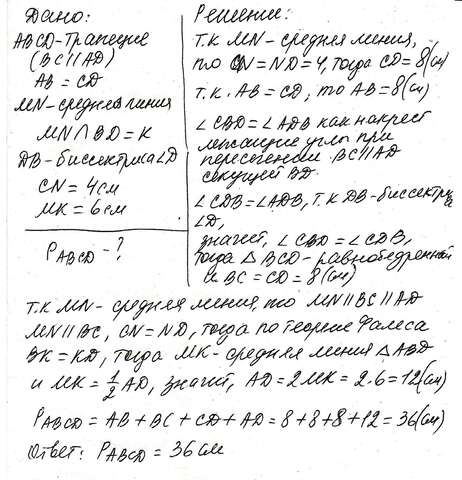 Дано:
ABCD - трапеция
(BC || AD)
AB = CD
MN - средняя линия
MN ∩ BD = K
DB - биссектриса ∠D
CN = 4 см
MK = 6 см
P ABCD - ?
Решение:
Т.к MN - средняя линия,
то CN = ND = 4, тогда CD = 8 (см)
Т.к. AB = CD, то AB = 8 (см)
∠CBD = ∠ADB как накрест
лежащие углы при
пересечении BC || AD
секущей BD.
∠CDB = ∠ADB, т.к DB - биссектриса
∠D,
значит, ∠CBD = ∠CDB,
тогда △ BCD - равнобедренный
и BC = CD = 8 (см)
Т.к MN - средняя линия, то MN || BC || AD
MN || BC, CN = ND, тогда по теореме Фалеса
BK = KD, тогда MK - средняя линия △ ABD
и MK = 1/2 AD, значит, AD = 2MK = 2·6 = 12 (см)
P ABCD = AB + BC + CD + AD = 8 + 8 + 8 + 12 = 36 (см)
Ответ: P ABCD = 36 см